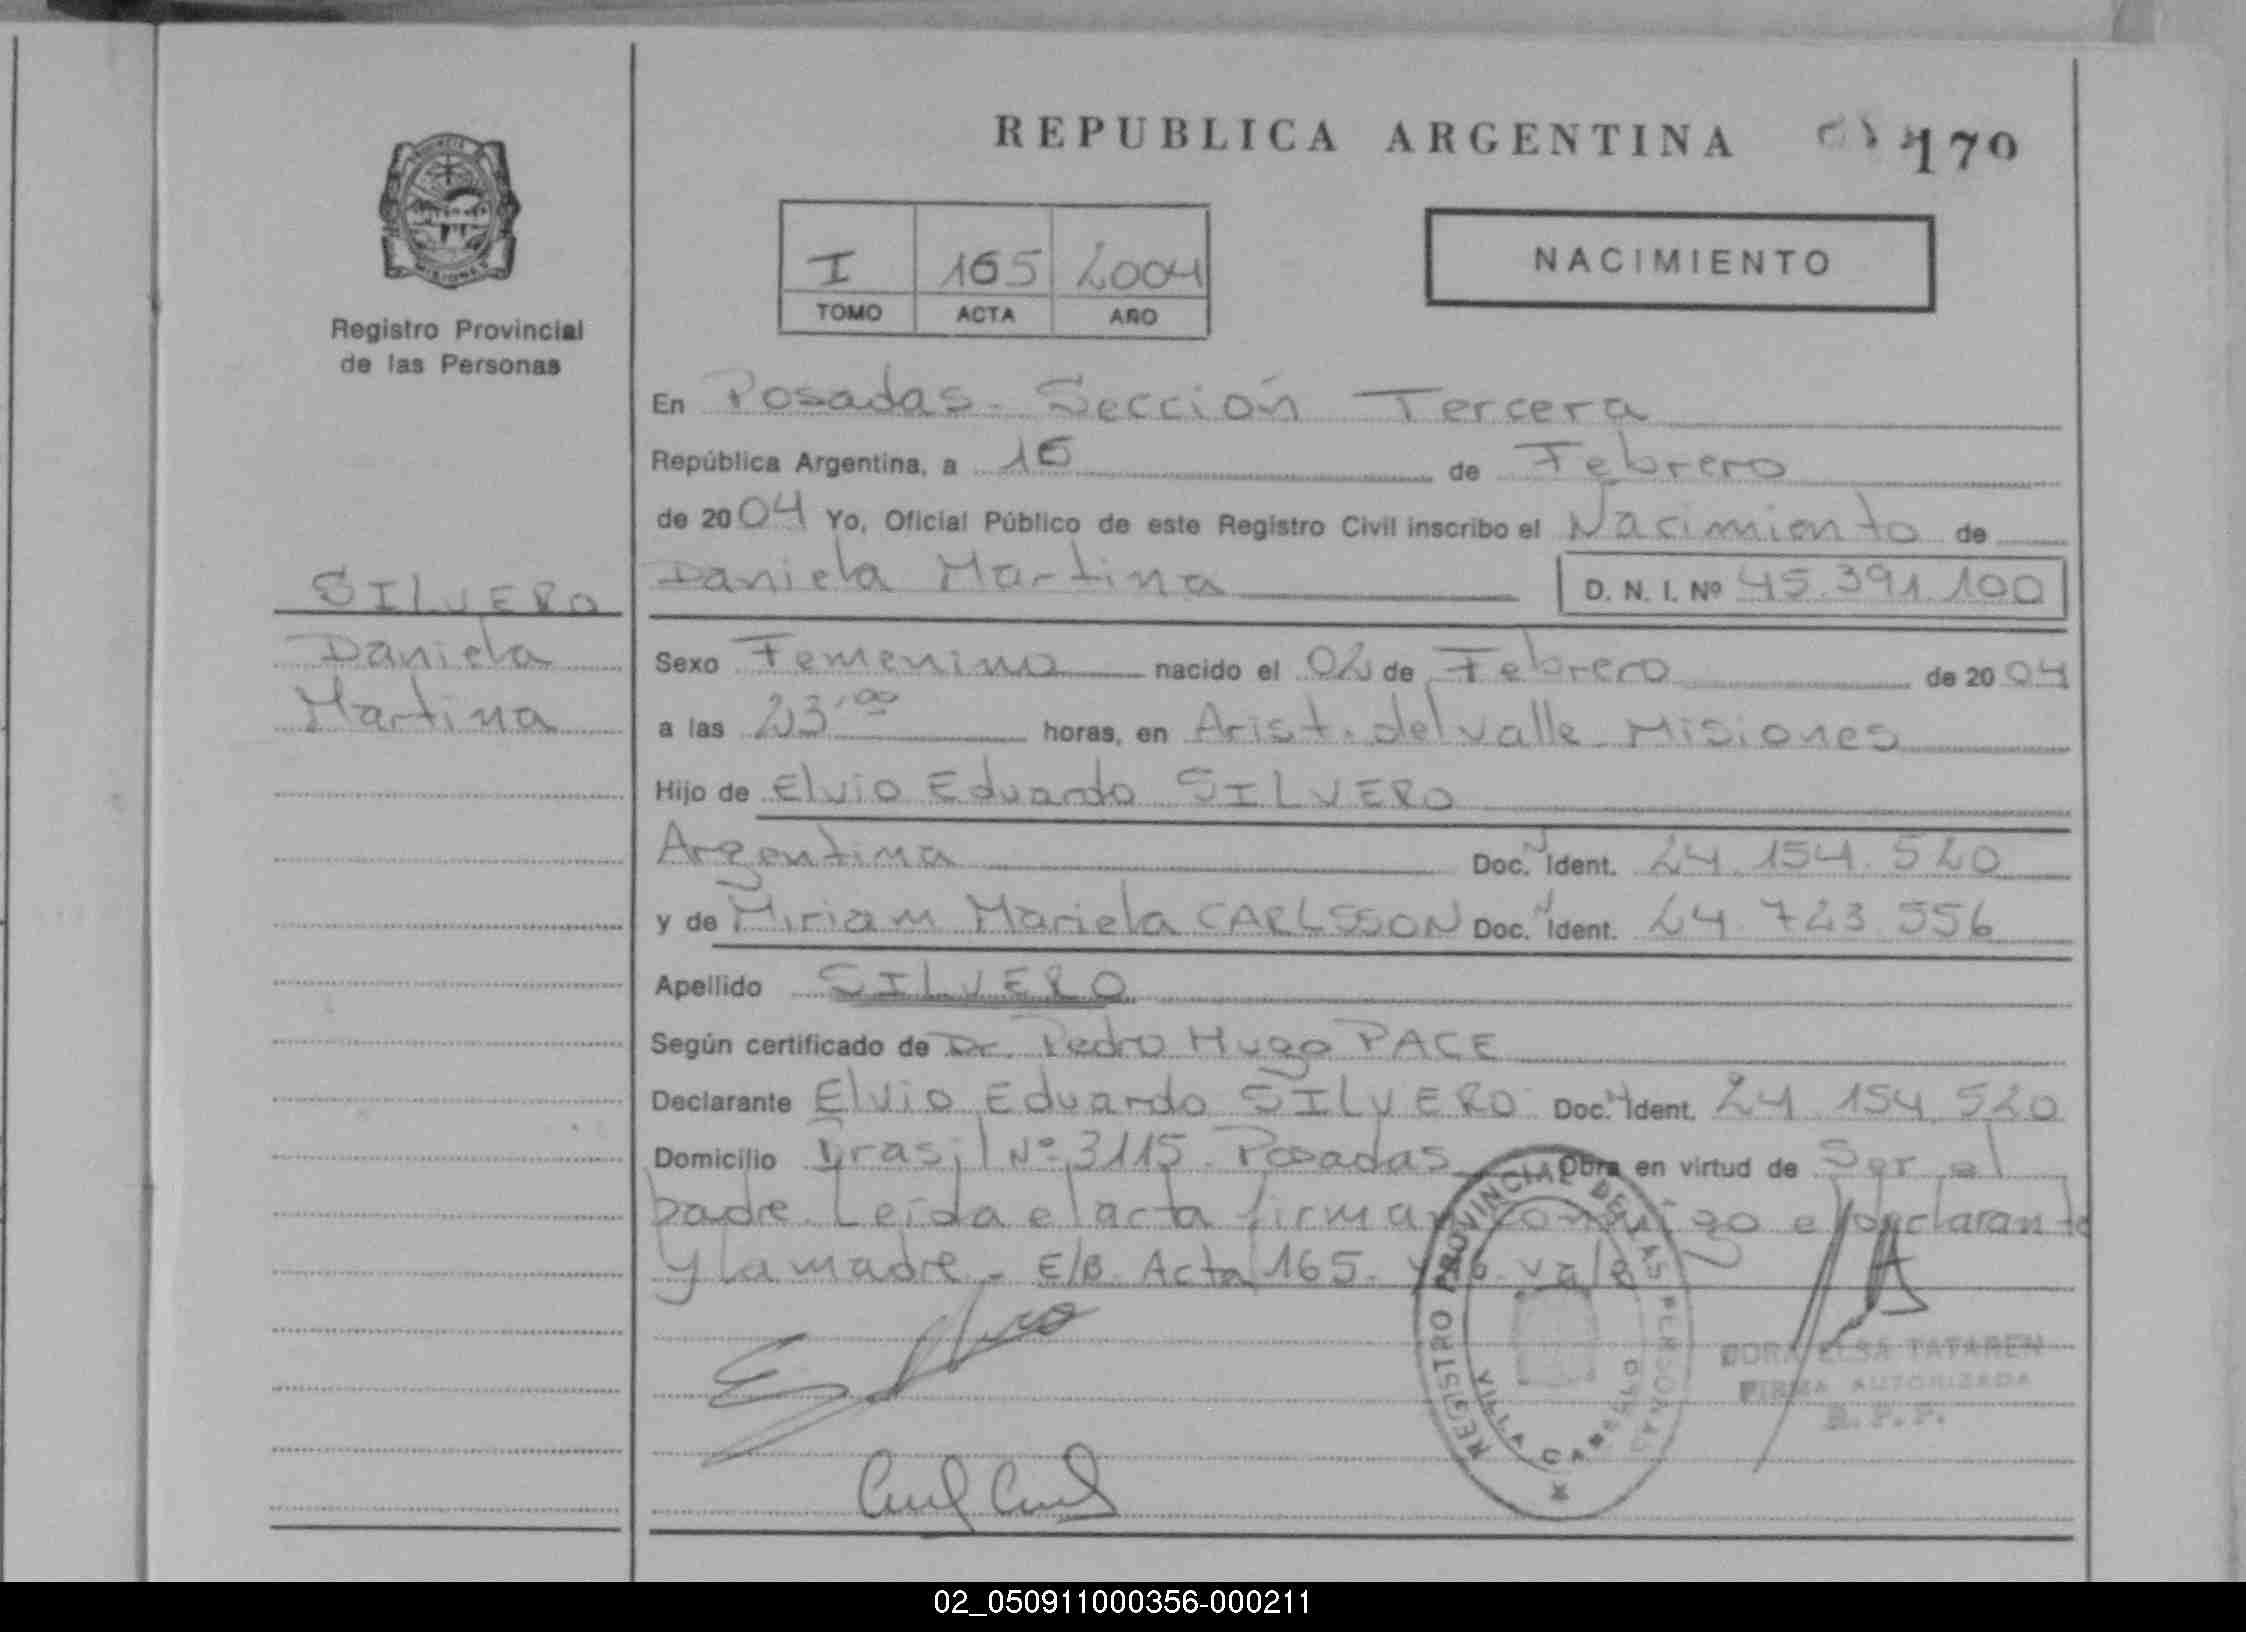 REPUBLICA ARGENTINA 170
PROVINCIA
MISIONES
Registro Provincial
de las Personas
I 165 2004
TOMO ACTA AÑO
NACIMIENTO
En Posadas - Sección Tercera
República Argentina, a 16 de Febrero
de 2004 Yo, Oficial Público de este Registro Civil inscribo el Nacimiento de
SILVERO
Daniela Martina D. N. I. Nº 45.391.100
Daniela
Martina
Sexo Femenino nacido el 02 de Febrero de 2004
a las 23,00 horas, en Arist. del valle Misiones
Hijo de Elvio Eduardo SILVERO
Argentina Doc. N Ident. 24.154.520
y de Miriam Mariela CARLSSON Doc. N Ident. 24.723.556
Apellido SILVERO
Según certificado de Dr. Pedro Hugo PACE
Declarante Elvio Eduardo SILVERO Doc. N Ident. 24.154.520
Domicilio Brasil Nº 3115 - Posadas Obra en virtud de Ser el
padre. Leída el acta firman conmigo el declarante
y la madre - E/B. Acta 165. y 16. vale
REGISTRO PROVINCIAL DE LAS PERSONAS
VILLA CABELLO
DORA ELSA TATAREN
FIRMA AUTORIZADA
R. P. P.
02_050911000356-000211